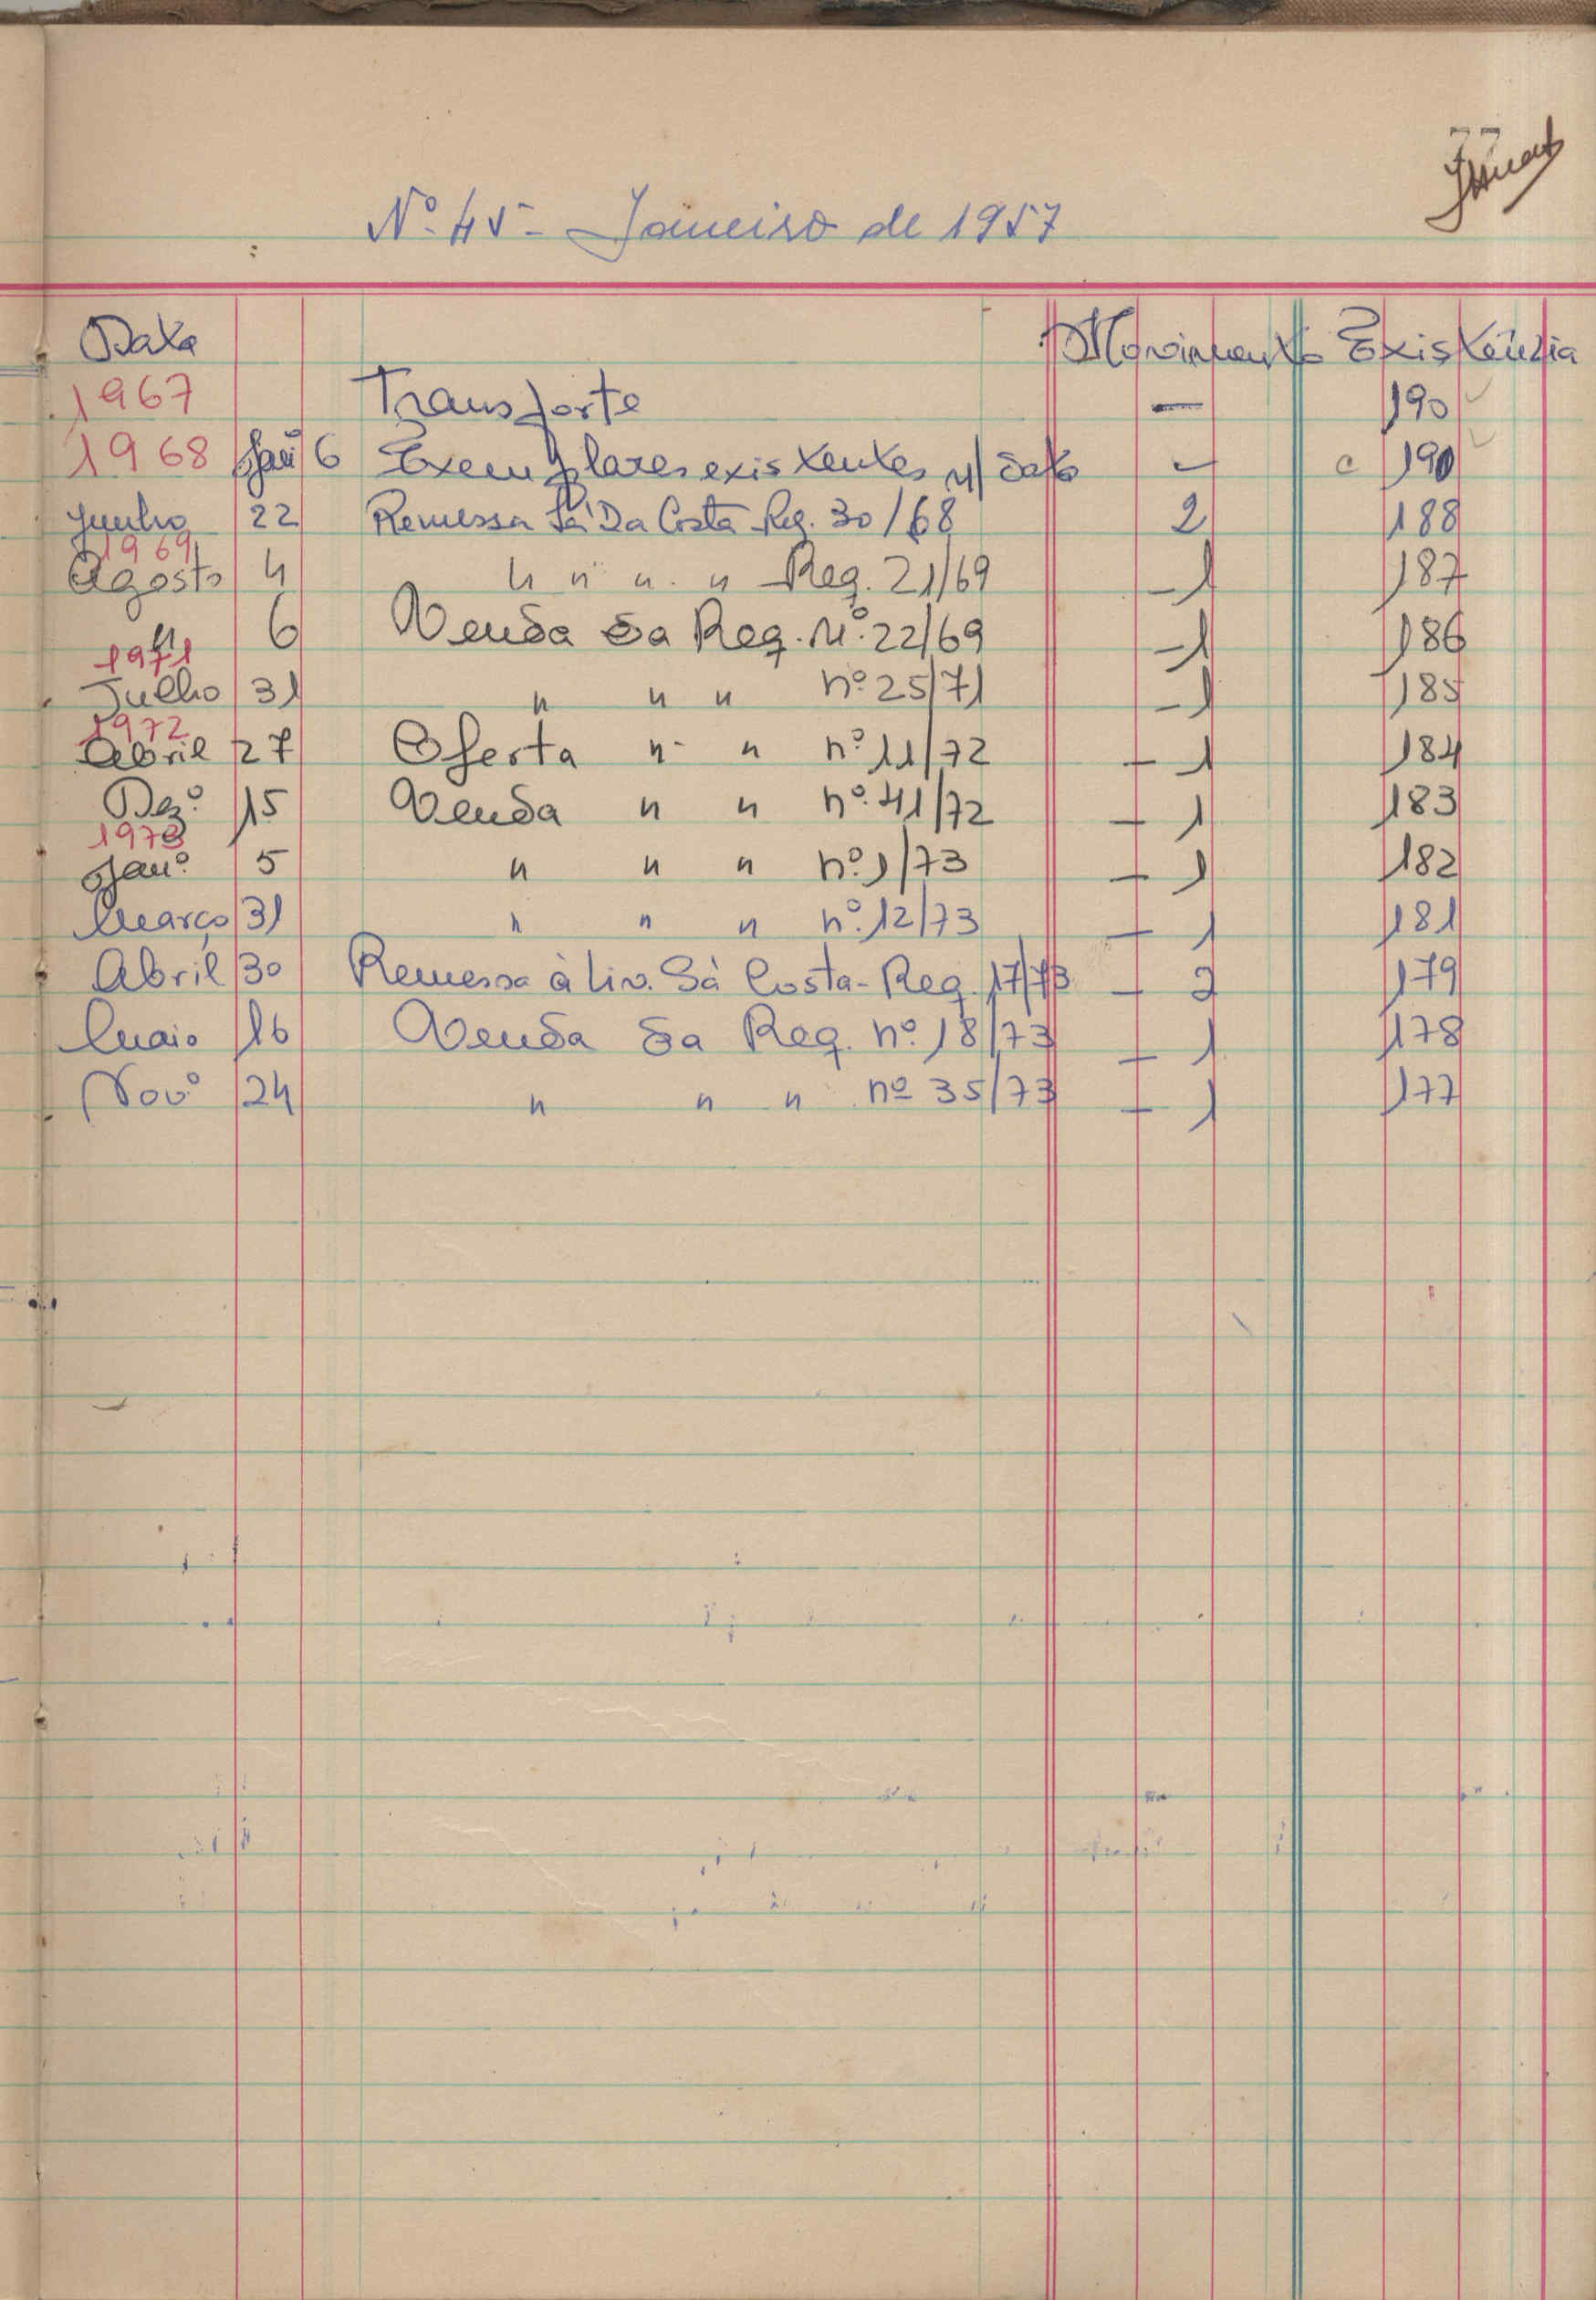 77
Nº 45 - Janeiro de 1957
Data Movimento Existência
1967 Transporte — 190
1968 Janº 6 Exemplares existentes n/ data - 190
Junho 22 Remessa Sá Da Costa Req. 30/68 2 188
1969
Agosto 4 " " " " Req. 21/69 - 1 187
" 6 Venda da Req. Nº 22/69 - 1 186
1971
Julho 31 " " " nº 25/71 - 1 185
1972
Abril 27 Oferta " " nº 11/72 - 1 184
Dezº 15 Venda " " nº 41/72 - 1 183
1973
Janº 5 " " " nº 1/73 - 1 182
Março 31 " " " nº 12/73 - 1 181
Abril 30 Remessa à Liv. Sá Costa - Req. 17/73 - 2 179
Maio 16 Venda da Req. nº 18/73 - 1 178
Novº 24 " " " nº 35/73 - 1 177